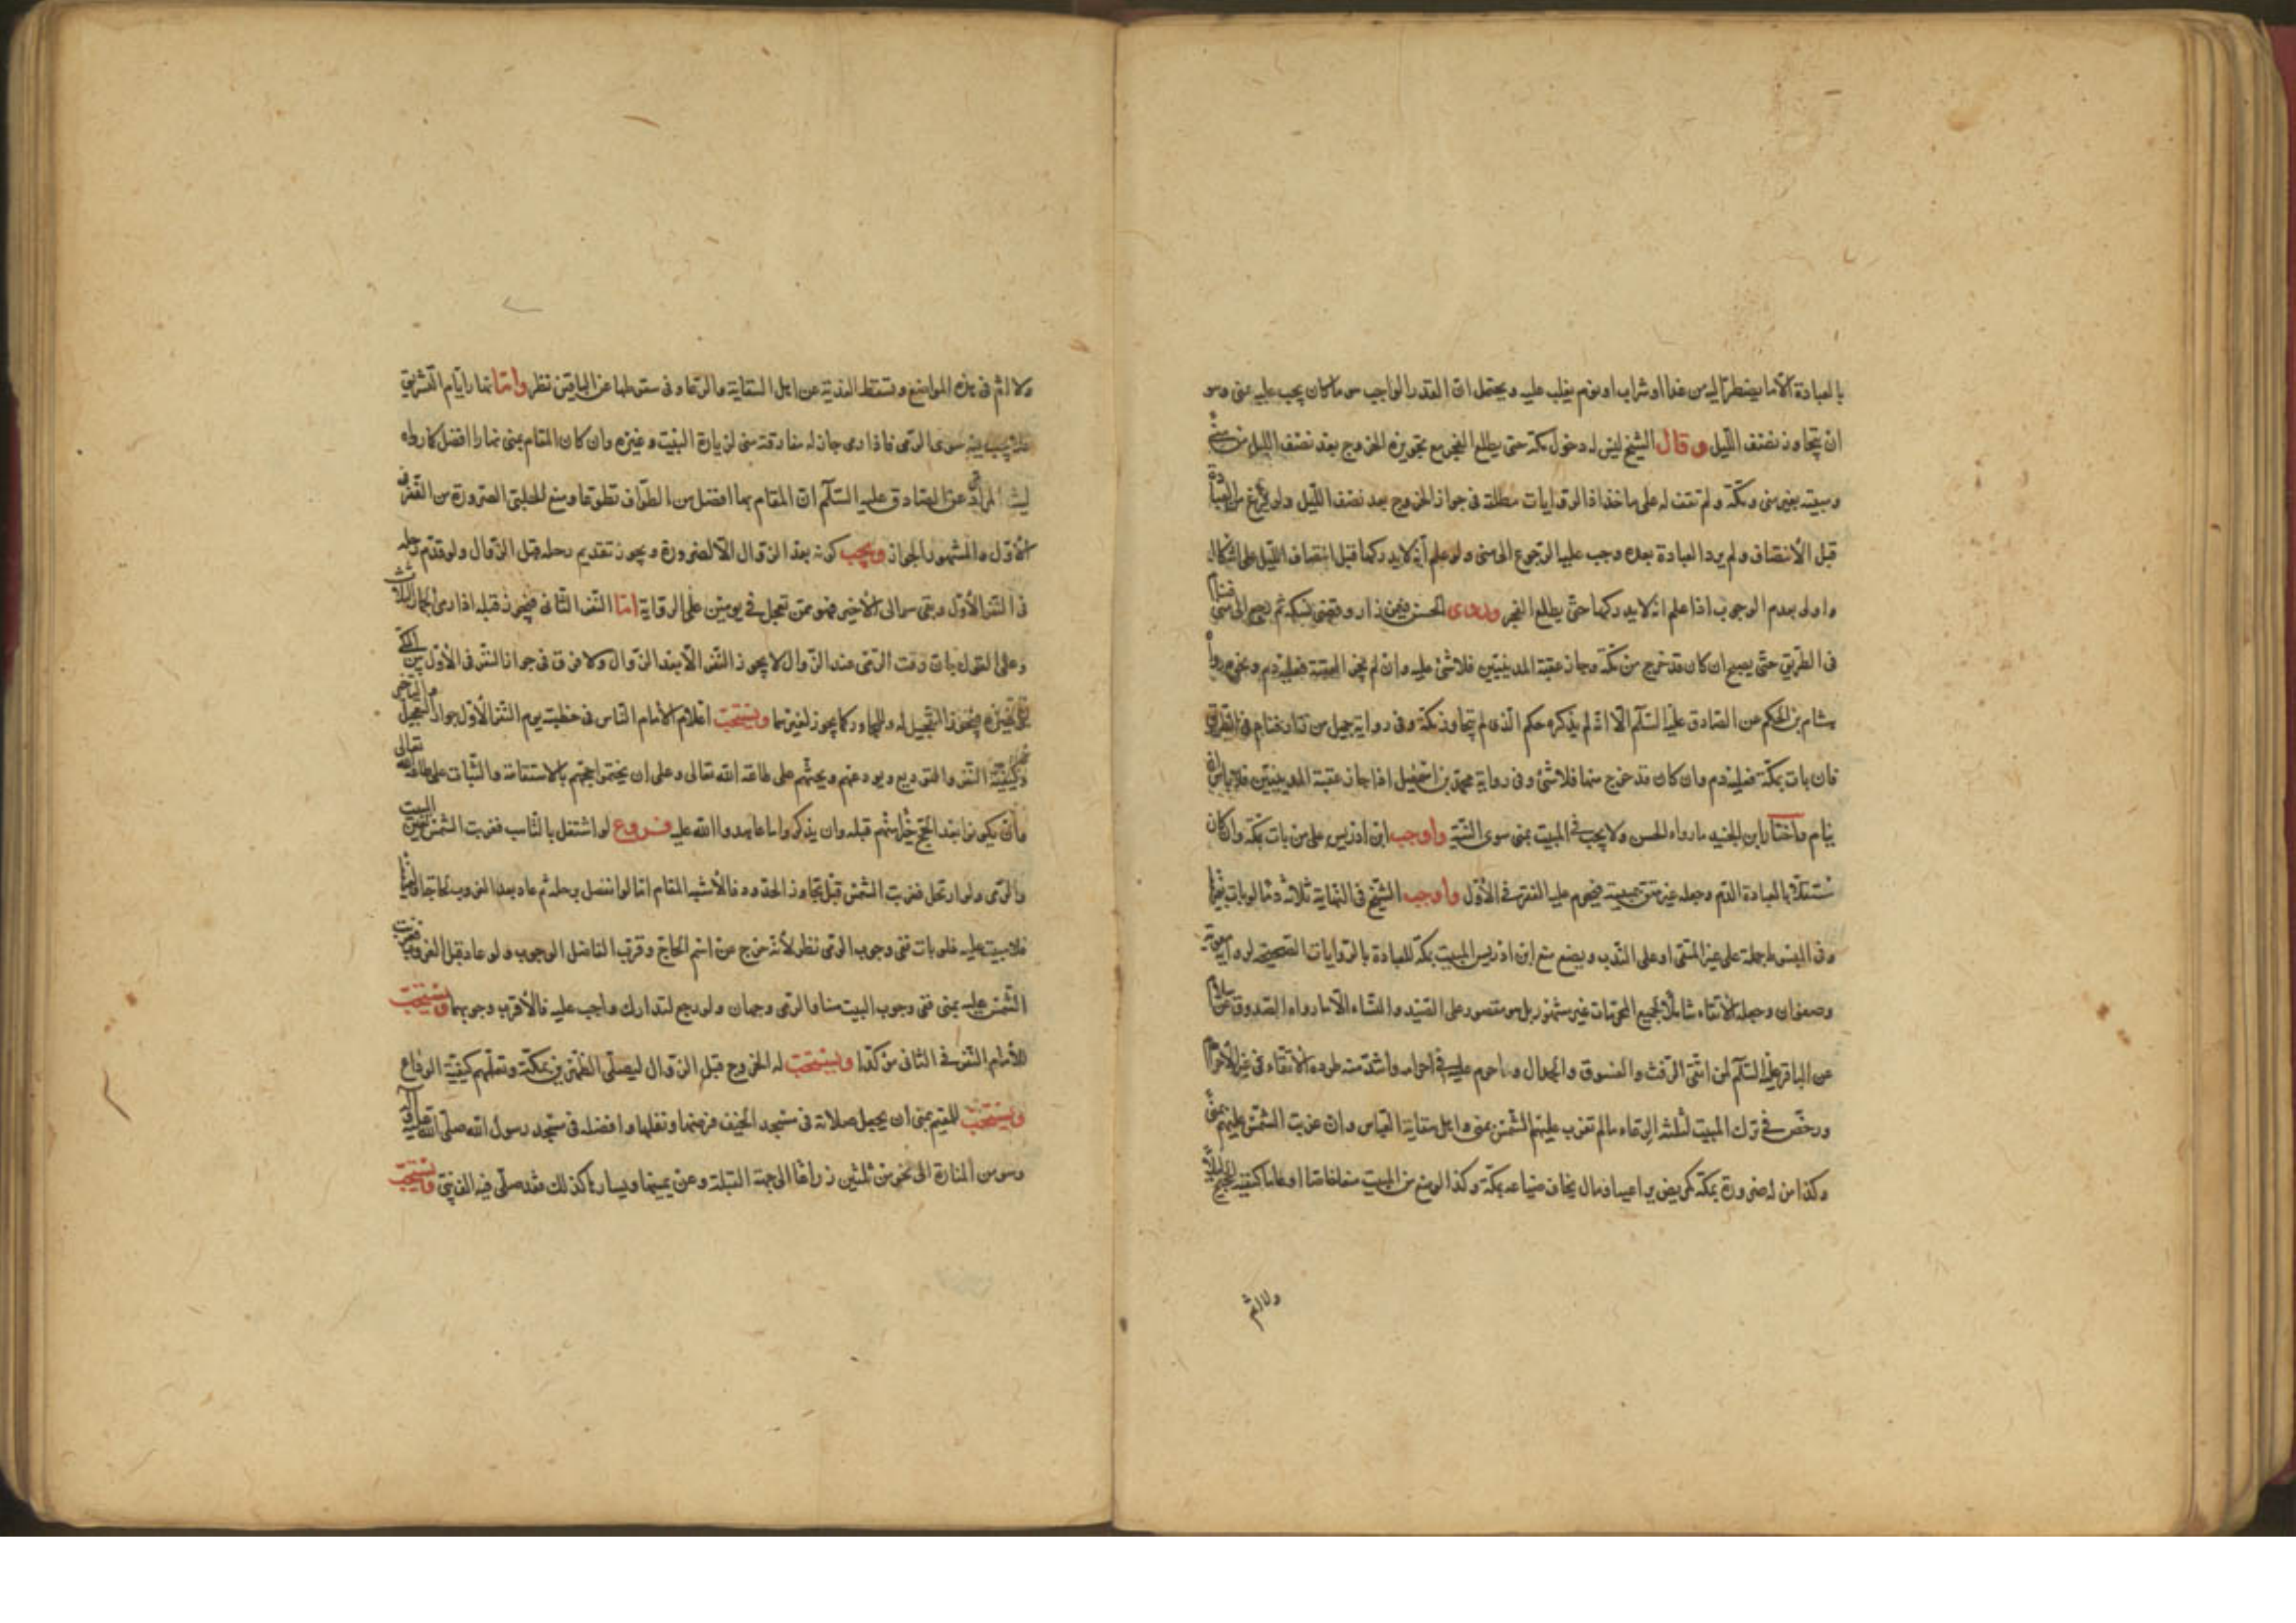 بالعبادة الا ما يضطر اليه من غذا او شراب او نوم يغلب عليه ويحتمل ان القدر الواجب هو ما كان يجب عليه بمنى وهو
ان يتجاوز نصف الليل وقال الشيخ ليس له دخول مكة حتى يطلع الفجر مع تجويزه الخروج بعد نصف الليل من منى
ومبيته بغير منى ومكة ولم نقف له على ماخذ اذ الروايات مطلقة في جواز الخروج بعد نصف الليل ولو فرغ من العبادة
قبل الانتصاف ولم يرد العبادة بعده وجب عليه الرجوع الى منى ولو علم انه لا يدركها قبل انتصاف الليل على اشكال
واولى بعدم الوجوب اذا علم انه لا يدركها حتى يطلع الفجر وروى الحسن فيمن زار وقضى نسكه ثم رجع الى منى فنام
في الطريق حتى يصبح ان كان قد خرج من مكة وجاز عقبة المدنيين فلا شئ عليه وان لم يجز العقبة فعليه دم ونحوه رواه
هشام بن الحكم عن الصادق عليه السلام الا انه لم يذكره حكم الذي لم يتجاوز مكة وفى رواية جميل من زار فنام في الطريق
فان بات بمكة فعليه دم وان كان قد خرج منها فلا شئ وفى رواية محمد بن اسمعيل اذا جاز عقبة المدنيين فلا باس ان
ينام واختار ابن الجنيد ما رواه الحسن ولا يجب في المبيت بمنى سوى النية واوجب ابن ادريس على من بات بمكة وان كان
مشتغلا بالعبادة الدم وجعله غير متق فيحرم عليه النفر في الاول واوجب الشيخ في النهاية ثلاثة دما لو بات بغيرها
وفى المبسوط حمله على غير المتقى او على الندب ويضع منع ابن ادريس المبيت بمكة للعبادة بالروايات الصحيحة لو معوية
وصفوان وجعله الاتقاء شاملا لجميع المحرمات غير مشهور بل هو مقصور على الصيد والنساء الا ما رواه الصدوق عن سلام
عن الباقر عليه السلام لمن اتقى الرفث والفسوق والجدال وما حرم عليه في احرامه واشد منه طرده الاتقاء في غير الاحرام
ورخص في ترك المبيت لثلثة الرعاء ما لم تغرب عليهم الشمس بمنى واهل سقاية العباس وان غربت الشمس عليهم بمنى
وكذا من له ضرورة بمكة كمريض يراعيه او مال يخاف ضياعه بمكة وكذا لو منع من المبيت منعا خاصا او عاما كنفر الحجيج ليلا
ولا اثم
ولا اثم في هذه المواضع وتسقط الفدية عن اهل السقاية والرعاء وفى سقوطها عن الباقين نظر واما نهار ايام التشريق
فلا يجب فيه سوى الرمى فاذا رمى جاز له مفارقة منى لزيارة البيت وغيره وان كان المقام بمنى نهارا افضل كما رواه
ليث المرادى عن الصادق عليه السلام ان المقام بها افضل من الطواف تطوعا ومنع الحلبي الصرورة من النفر في
الاول والمشهور الجواز ويجب كونه بعد الزوال الا لضرورة ويجوز تقديم رحله قبل الزوال ولو قدم رحله
في النفر الاول وبقى هو الى الاخير فهو ممن تعجل في يومين على الرواية اما النفر الثاني فيجوز قبله اذا رمى الجمار الثلاث
وعلى القول بان وقت الرمى عند الزوال لا يجوز النفر الا بعد الزوال ولا فرق في جواز النفر في الاول بين المكي
وغيره فيجوز التعجيل له وللمجاور كما يجوز لغيرهما ويستحب اعلام الامام الناس في خطبته يوم النفر الاول جواز التعجيل والتاخير
وكيفية النفر والتوديع ويودعهم ويحثهم على طاعة الله تعالى وعلى ان يختموا حجهم بالاستقامة والثبات على طاعة الله تعالى
وان يكونوا بعد الحج خيرا منهم قبله وان يذكروا ما عاهدوا الله عليه فروع لو اشتغل بالتاهب فغربت الشمس تعين المبيت
والرمى ولو ارتحل فغربت الشمس قبل تجاوز الحدود فالاشبه المقام اما لو انفصل برحله ثم عاد بعد الغروب لحاجة
فلا مبيت عليه فلو بات ففى وجوب الرمى نظر لانه خرج من اسم الحاج وقرب الفاضل الوجوب ولو عاد قبل الغروب فغربت
الشمس عليه بمنى ففى وجوب المبيت هنا والرمى وجهان ولو رجع لتدارك واجب عليه فالاقرب وجوبهما ويستحب
للامام النفر في الثاني من كدا ويستحب له الخروج قبل الزوال ليصلى الظهرين بمكة ويعلمهم كيفية الوداع
ويستحب للمقيم بمنى ان يجعل صلاته في مسجد الخيف فرضها ونفلها وافضله في مسجد رسول الله صلى الله عليه وآله
وهو من المنارة الى نحو من ثلثين ذراعا الى جهة القبلة وعن يمينها ويسارها كذلك فقد صلى فيه الف نبى ويستحب